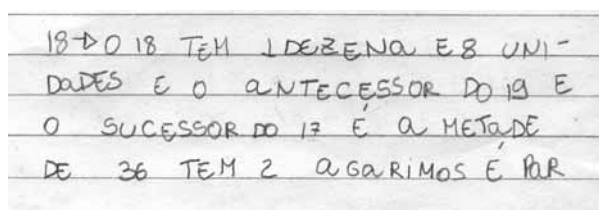 18→O 18 TEM 1 DEZENA E 8 UNI-
DADES E O ANTECESSOR DO 19 E
O SUCESSOR DO 17 É A METADE
DE 36 TEM 2 AGARIMOS É PAR